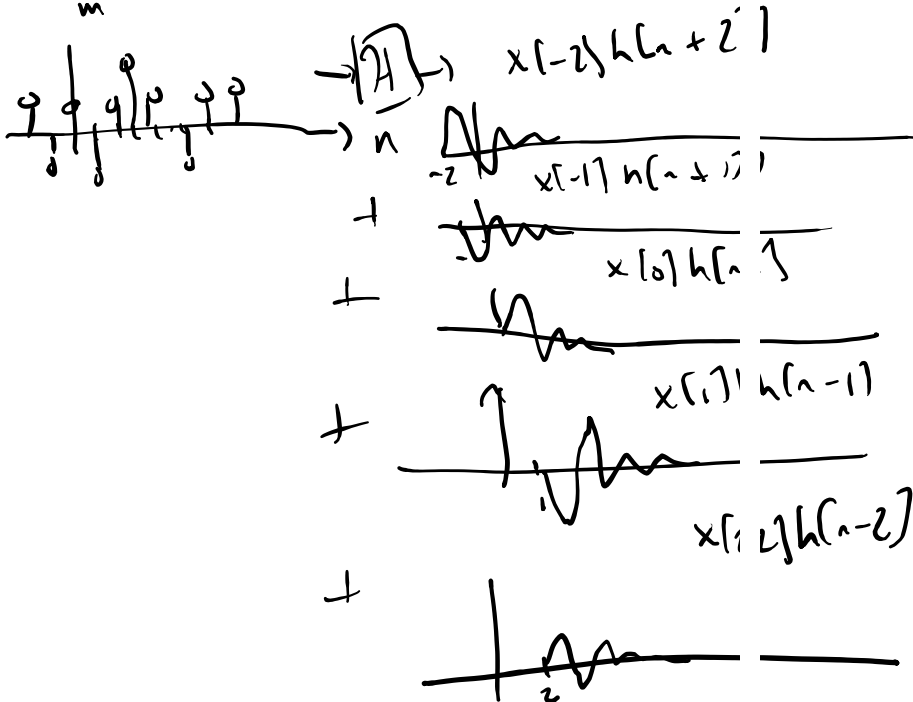 m
H
x[-2]h[n+2]
n
-2
x[-1]h[n+1]
+
x[0]h[n]
+
x[1]h[n-1]
+
1
x[2]h[n-2]
+
2